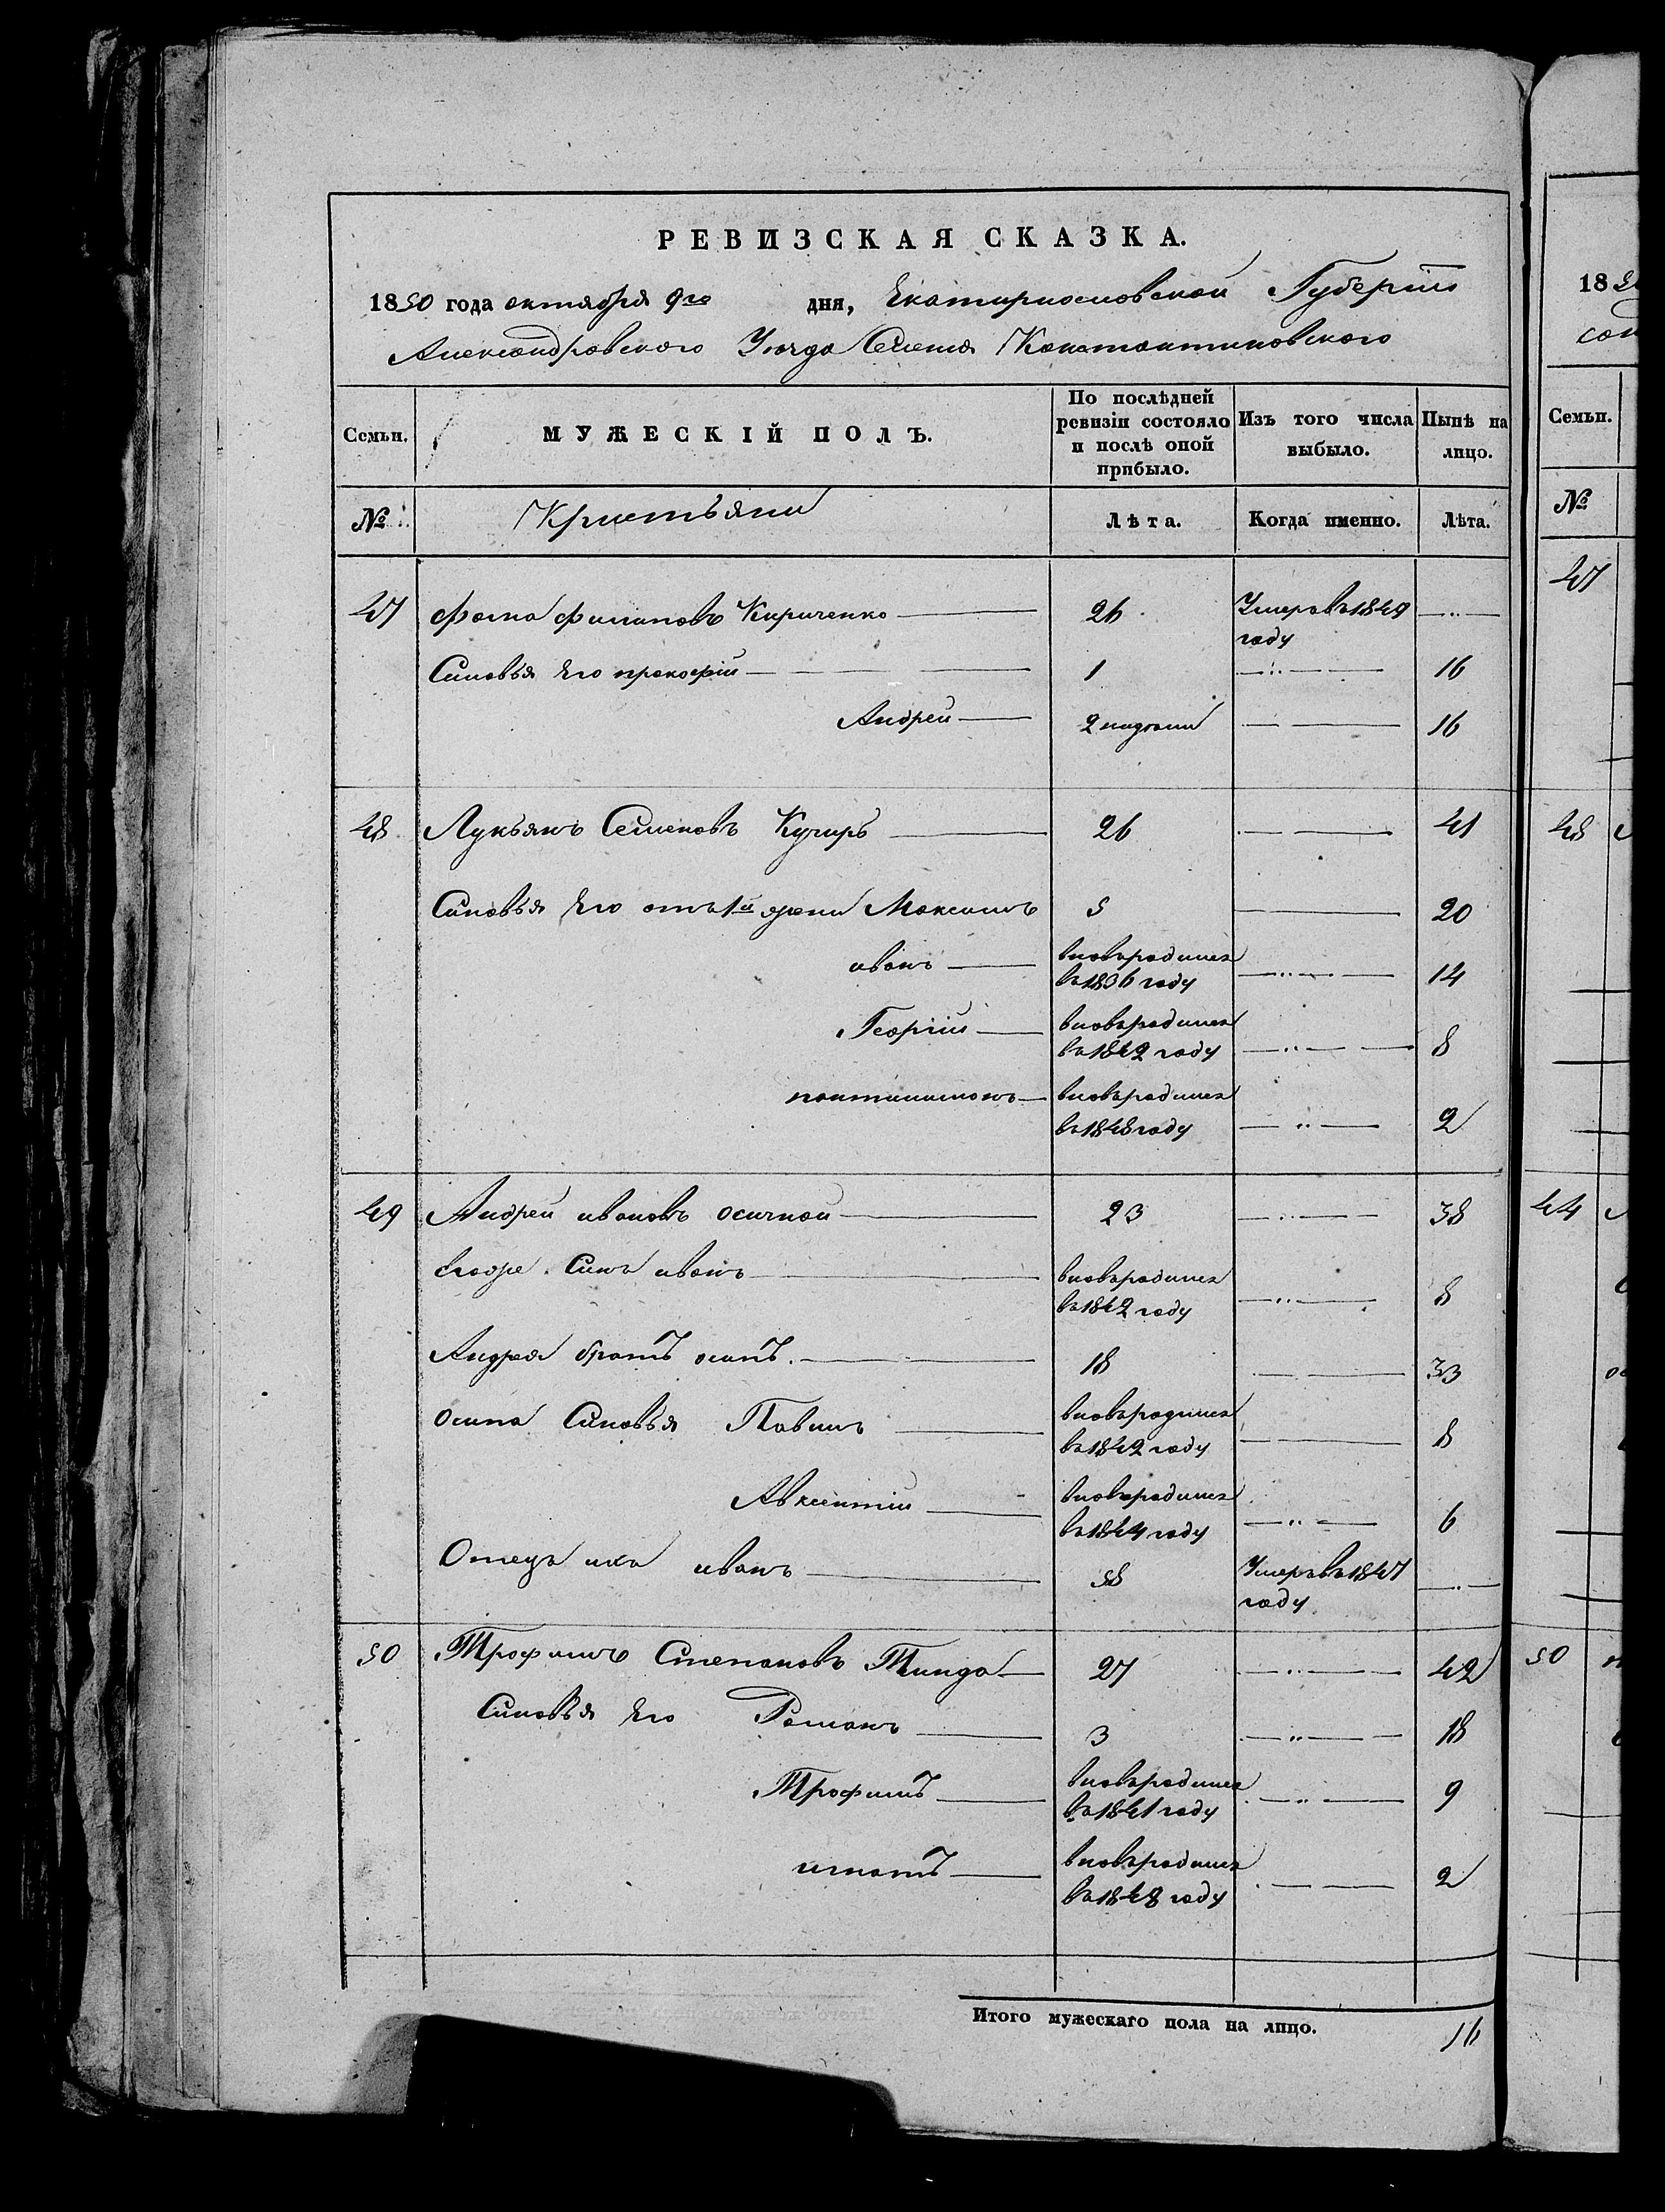 РЕВИЗСКАЯ СКАЗКА.
1850 года октября 9го дня, Екатириословской Губерніи
Александровского Уезда Селенія Константиновского
Семьи. МУЖЕСКІЙ ПОЛЪ. По послѣдней ревизіи состояло и послѣ оной прибыло. Изъ того числа выбыло. Нынѣ на лицо.
№ Кристьяни Лѣта. Когда именно. Лѣта.
47 Фома Филиповъ Кириченко 26 Умеръ въ 1849
году
Синовья Его прокофій 1 16
Андрей 2 нидѣли 16
48 Лукьянъ Семеновъ Кучиръ 26 41
Синовья Его отъ 1й жени Максимъ 5 20
иванъ вновьродился
въ 1836 году 14
Георгій вновьродился
въ 1842 году 8
пантилимонъ вновьродился
въ 1848 году 2
49 Андрей ивановъ осичной 23 38
Егоже Синъ иванъ вновьродился
въ 1842 году 8
Андрея братъ осипъ. 18 33
осипа Синовья Павилъ вновьродился
въ 1842 году 8
Авксентій вновьродился
въ 1844 году 6
Отецъ ихъ иванъ 58 Умеръ въ 1847
году
50 Трофимъ Степановъ Гинда 27 42
Синовья Его Романъ 3 18
Трофимъ вновьродился
въ 1841 году 9
игнатъ вновьродился
въ 1848 году 2
Итого мужескаго пола на лицо. 16
18
Семьи.
№
47
48
44
50